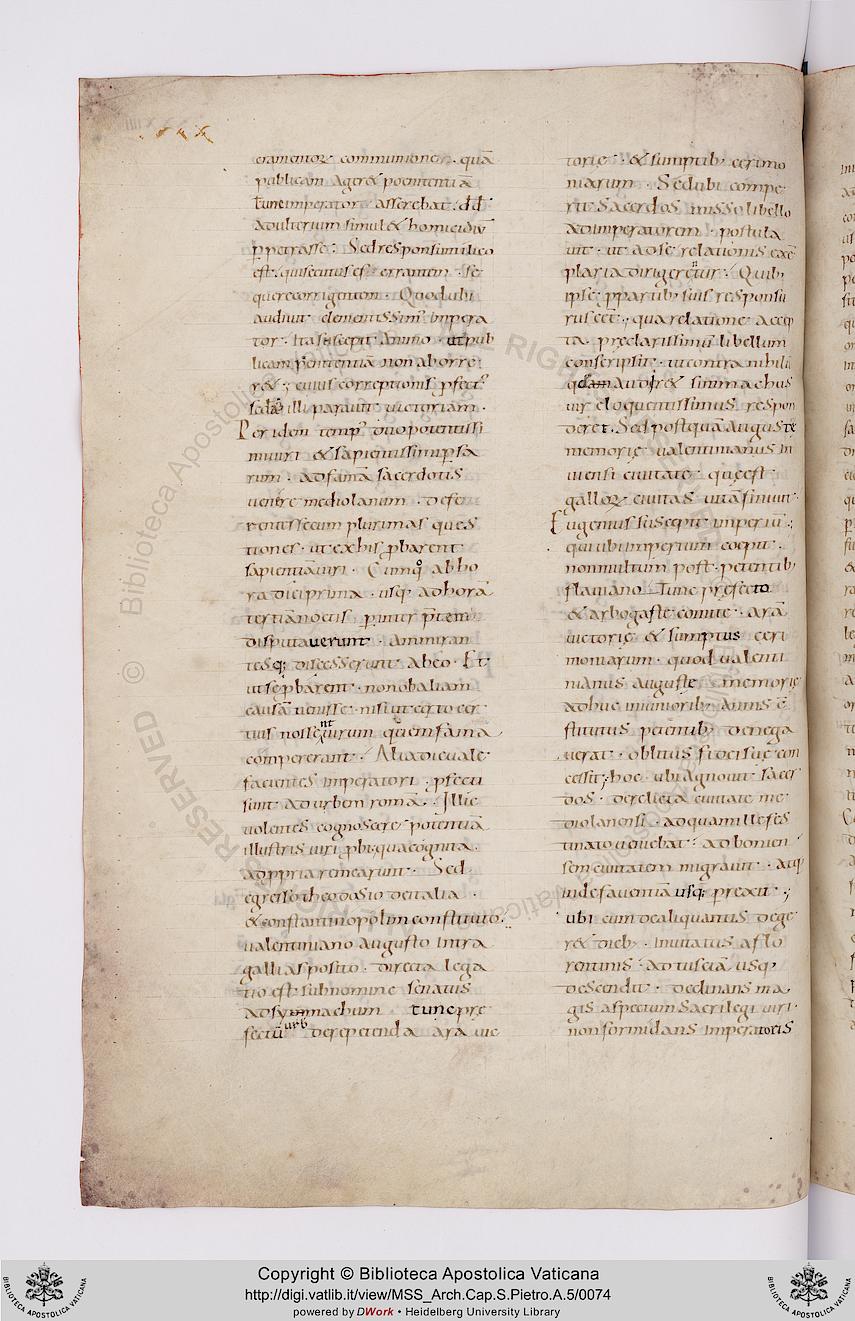 cramentoꝝ communione. quā
publicam ageret poenitentiā
tunc imperator asserebat. dd̄
adulterium simul & homicidiū
ꝑpetrasse. Sed responsum ilico
est. qui secutus es errantem. se
quere corrigentem. Quod ubi
audiuit clementissimꝰ impera
tor. ita suscepit animo. ut pub
licam penitentiā non abhorre
r&. cuius correptionis ꝓfectꝰ
illi parauit uictoriam.
Per idem tempꝰ duo potentissi
mi uiri & sapientissimi ꝑsa
rum. ad famā sacerdotis
uenere mediolanum. defe
rentes secum plurimas ques
tiones. ut ex his ꝓbarent
sapientiā uiri. Cumq; ab ho
ra diei prima. usq; ad horā
tertiā noctis ꝑ inter p̄tem
disputauerunt. ammiran
tesq; discesserunt ab eo. Et
ut se ꝓbarent. non ob aliam
causā uenisse. nisi ut certo cer
tius nossent uirum quē in fama
compererant. Alia die uale
facientes imperatori. ꝓfecti
sunt ad urbem romā. Illic
uolentes cognoscere potentiā
illustris uiri ꝓbi; qua cognita.
ad ꝓpria remearunt. Sed
egresso theodosio de italia.
& constantinopolim constituto.
ualentiniano augusto intra
gallias posito. directa lega
tio est sub nomine senatus
ad symmachum tunc pre
fectū urb̄ de repetenda ara uic
torię. & sumptib; cerimo
niarum. Sed ubi compe
rit sacerdos misso libello
ad imperatorem. postula
uit. ut ad se relationis exē
plaria dirigerentur. Quib;
ipse ꝓ partib; suis responsu
rus eēt; qua relatione accep
ta. preclarissimū libellum
conscripsit. ut contra nihil
quidam auder& simmachus
uir eloquentissimus respon
dere. Sed postquā auguste
memorię ualentinianus in
uiensi ciuitate. quę est
galloꝝ ciuitas uitā finiuit.
Eugenius suscepit imperiū;
qui ubi imperium coepit.
non multum post. petentib;
flauiano tunc prefecto
& arbogaste comite. arā
uictorię & sumptus ceri
moniarum. quod ualenti
nianus augustę memorię
adhuc in iuniorib; annis cō
stitutus petentib; denega
uerat. oblitus fidei suę con
cessit; hoc ubi agnouit sacer
dos. derelicta ciuitate me
diolanensi. ad quam ille fes
tinato ueniebat. ad bonien
sem ciuitatem migrauit. atq;
inde fauentiā usq; perexit;
ubi cum de aliquantis dege
r& dieb; inuitatus a flo
rentinis. ad tusciā usq;
descendit. declinans ma
gis aspectum sacrilegi uiri.
non formidans imperatoris
Copyright © Biblioteca Apostolica Vaticana
http://digi.vatlib.it/view/MSS_Arch.Cap.S.Pietro.A.5/0074
powered by DWork • Heidelberg University Library